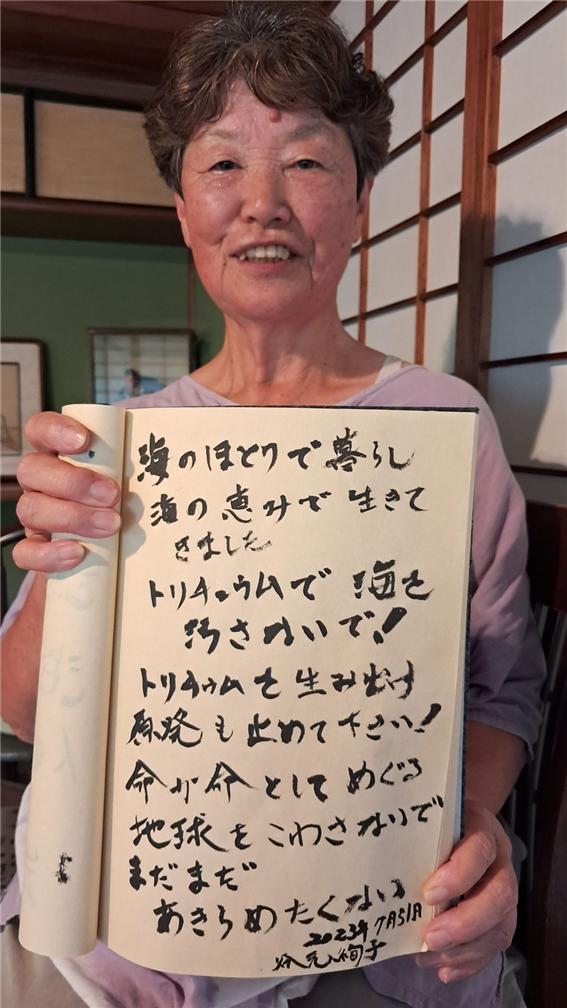 海のほとりで暮らし
海の恵みで生きて
きました
トリチュウムで海を
汚さないで!
トリチュウムを生み出す
原発も止めて下さい!
命が命としてめぐる
地球をこわさないで
まだまだ
あきらめたくない
2023年7月31日